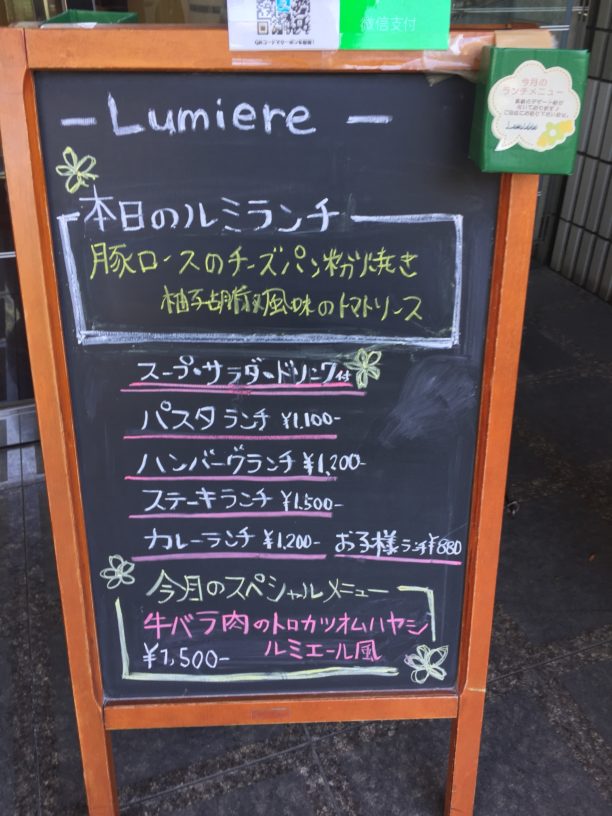 微信支付
今月の
ランチメニュー
Lumiere
— Lumiere —
本日のルミランチ
豚ロースのチーズパン粉焼き
柚子胡椒風味のトマトソース
スープ・サラダ・ドリンク付
パスタランチ ¥1,100-
ハンバーグランチ ¥1,200-
ステーキランチ ¥1,500-
カレーランチ ¥1,200- お子様ランチ¥880
今月のスペシャルメニュー
牛バラ肉のトロカツオムハヤシ
ルミエール風
¥1,500-